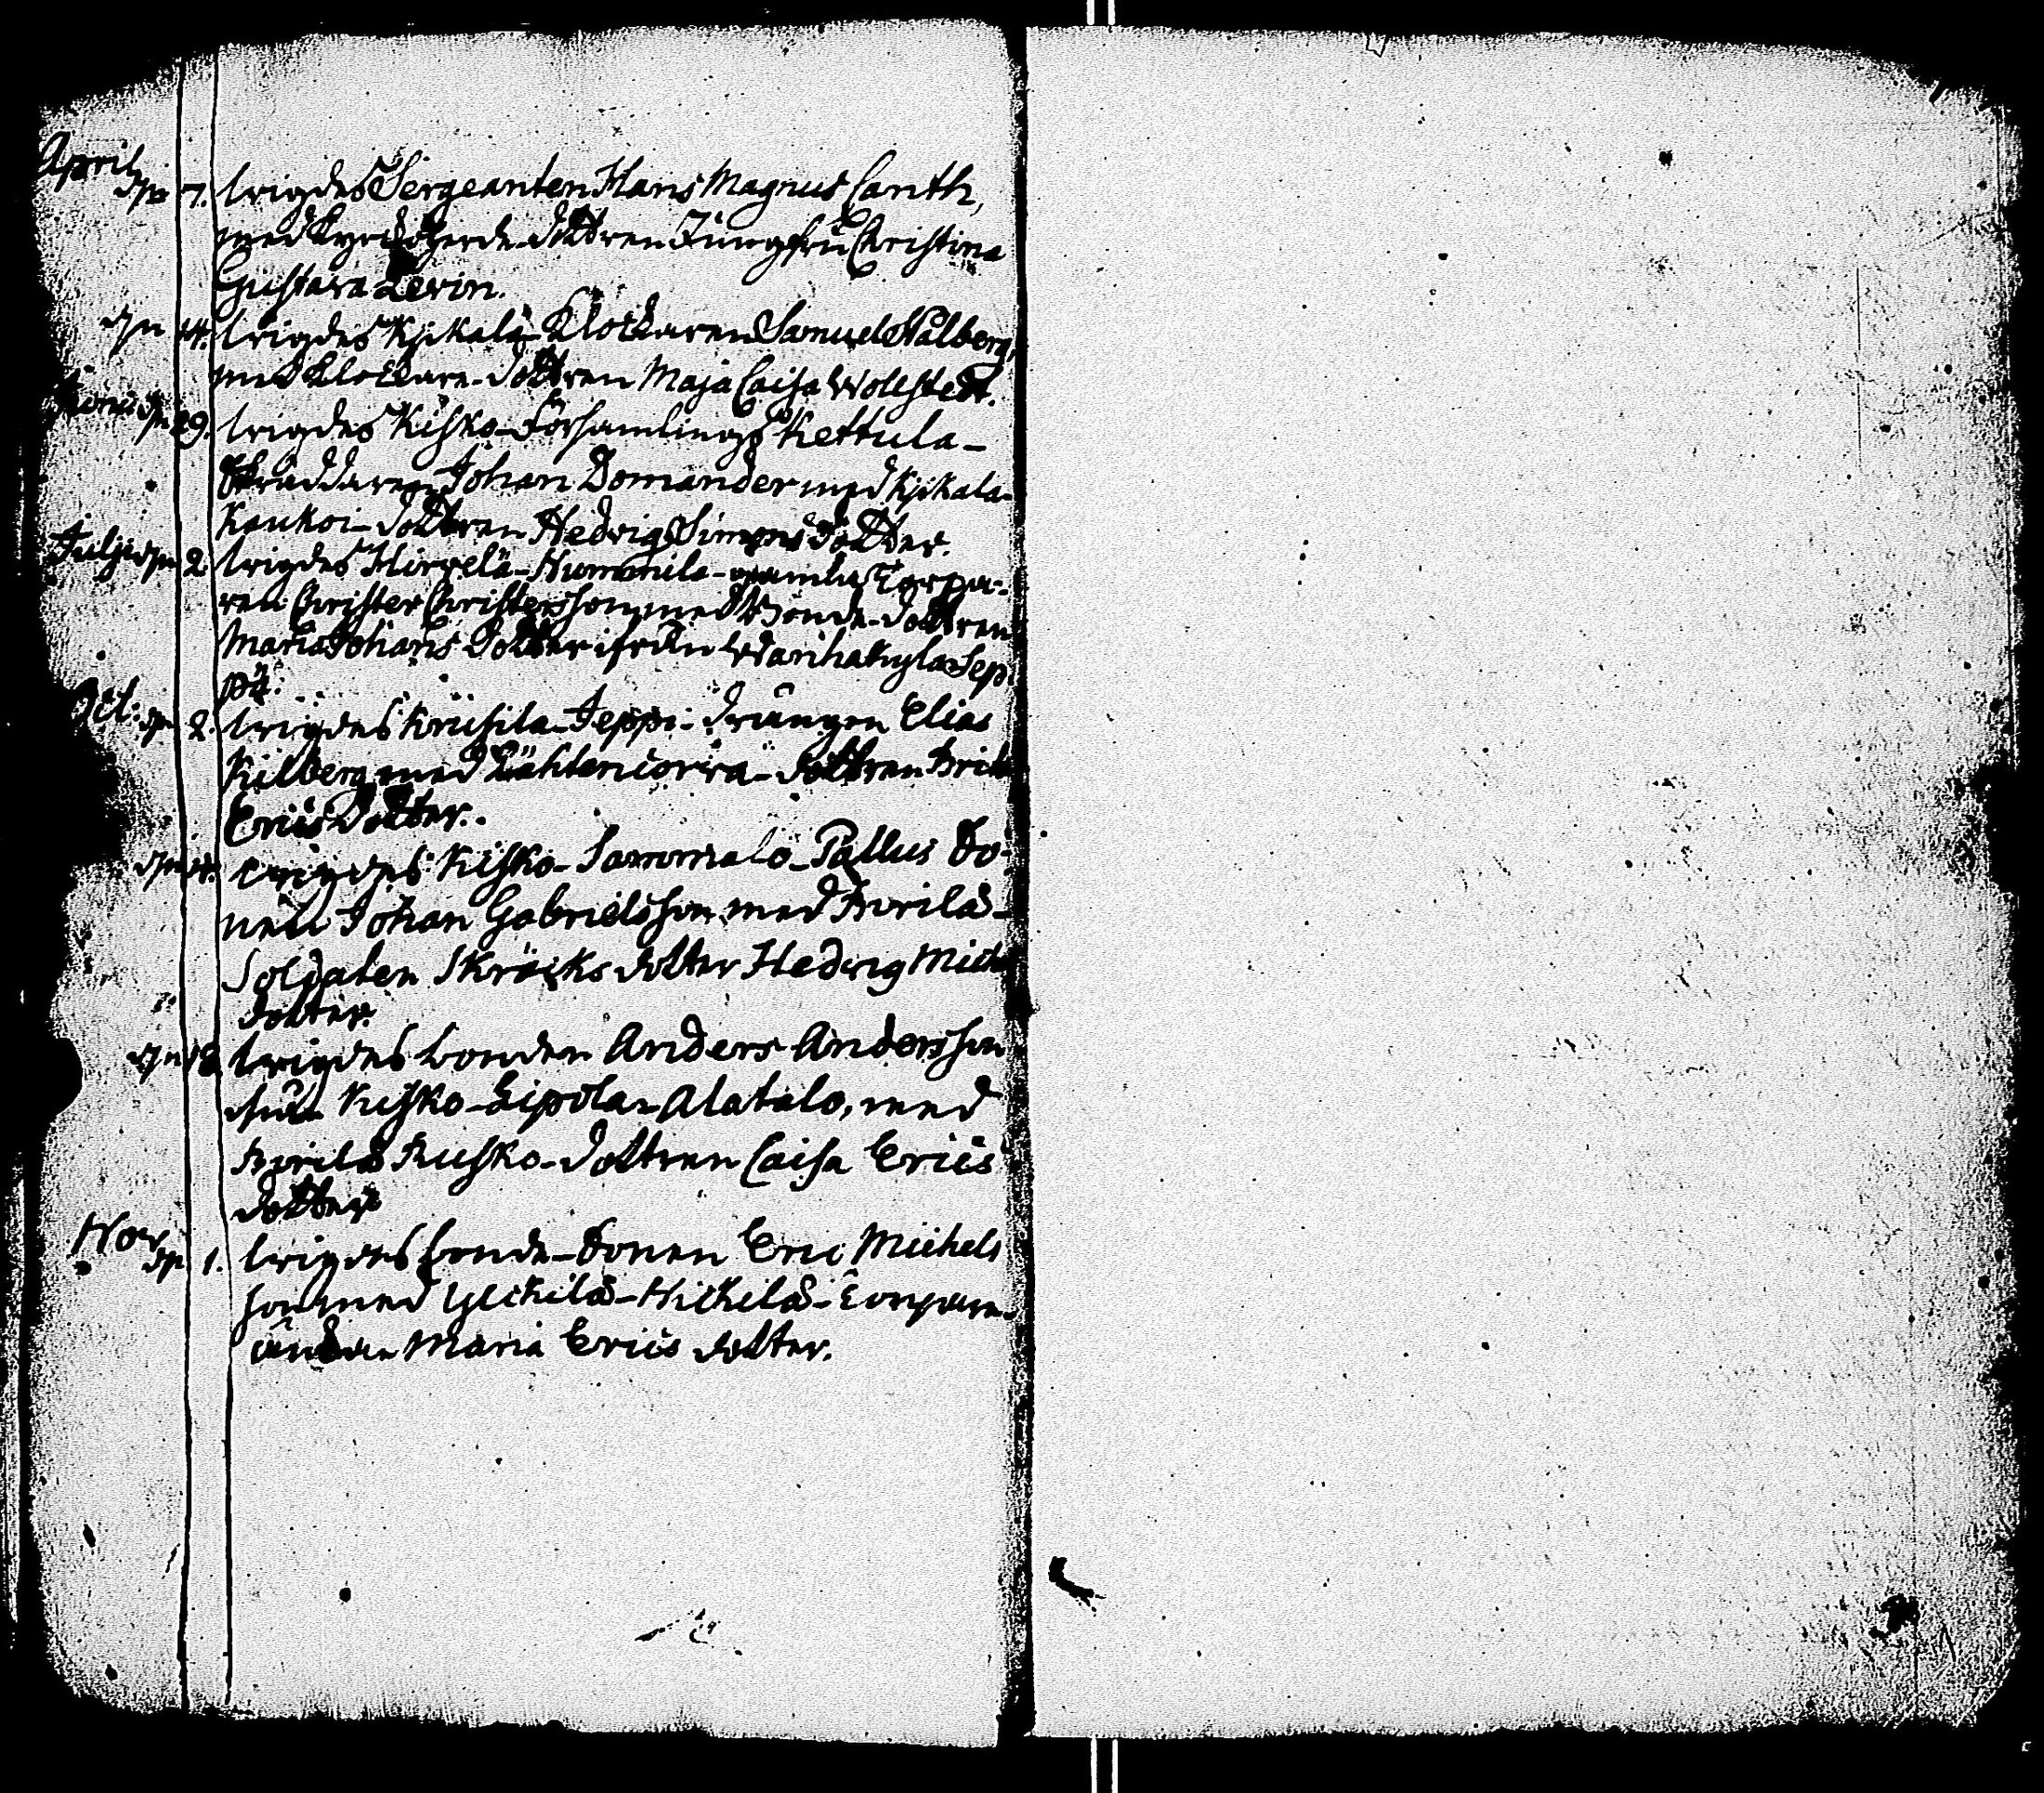 April
dn 7. wigdes Sergeanten Hans Magnus Canth,
med Dottren Jungfru Christina
Gustava Levin.
dn 14. wigdes Kjikala Klockaren Samuel Palberg,
med Klockare-Dottren Maja Caisa Wollstedt.
Junii dn 29. wigdes Kisko-Församlings Kettula-
Skräddaren Johan Domander med Kjikala-
Koukoi-Dottren Hedvig Simons Dotter.
Julji dn 2. wigdes Hirvelä-Nummila-gamla Torpa-
ren Christer Christersson med Bonde-Dottren
Maria Johans Dotter ifrån Wanhakyla Sep
pä.
Oct: dn 2. wigdes Krusila-Jeppi-Drängen Elias
Kilberg med Lähtencorva-Dottren Brita
Erics Dotter.
dn 14. wigdes Kisko-Sammalo-Pallus So-
nen Johan Gabrielsson med Torila-
Soldaten Skräcks dotter Hedvig Mich
dotter.
dn 18. wigdes bonden Anders Andersson
från Kisko-Lipola-Alatalo, med
Rusko-Dottren Caisa Erics
dotter
Nov
dn 1. wigdes bonde-Sonen Eric Michels
son med Yllkilä-Nickilä-Torpare
änkan Maria Erics dotter.